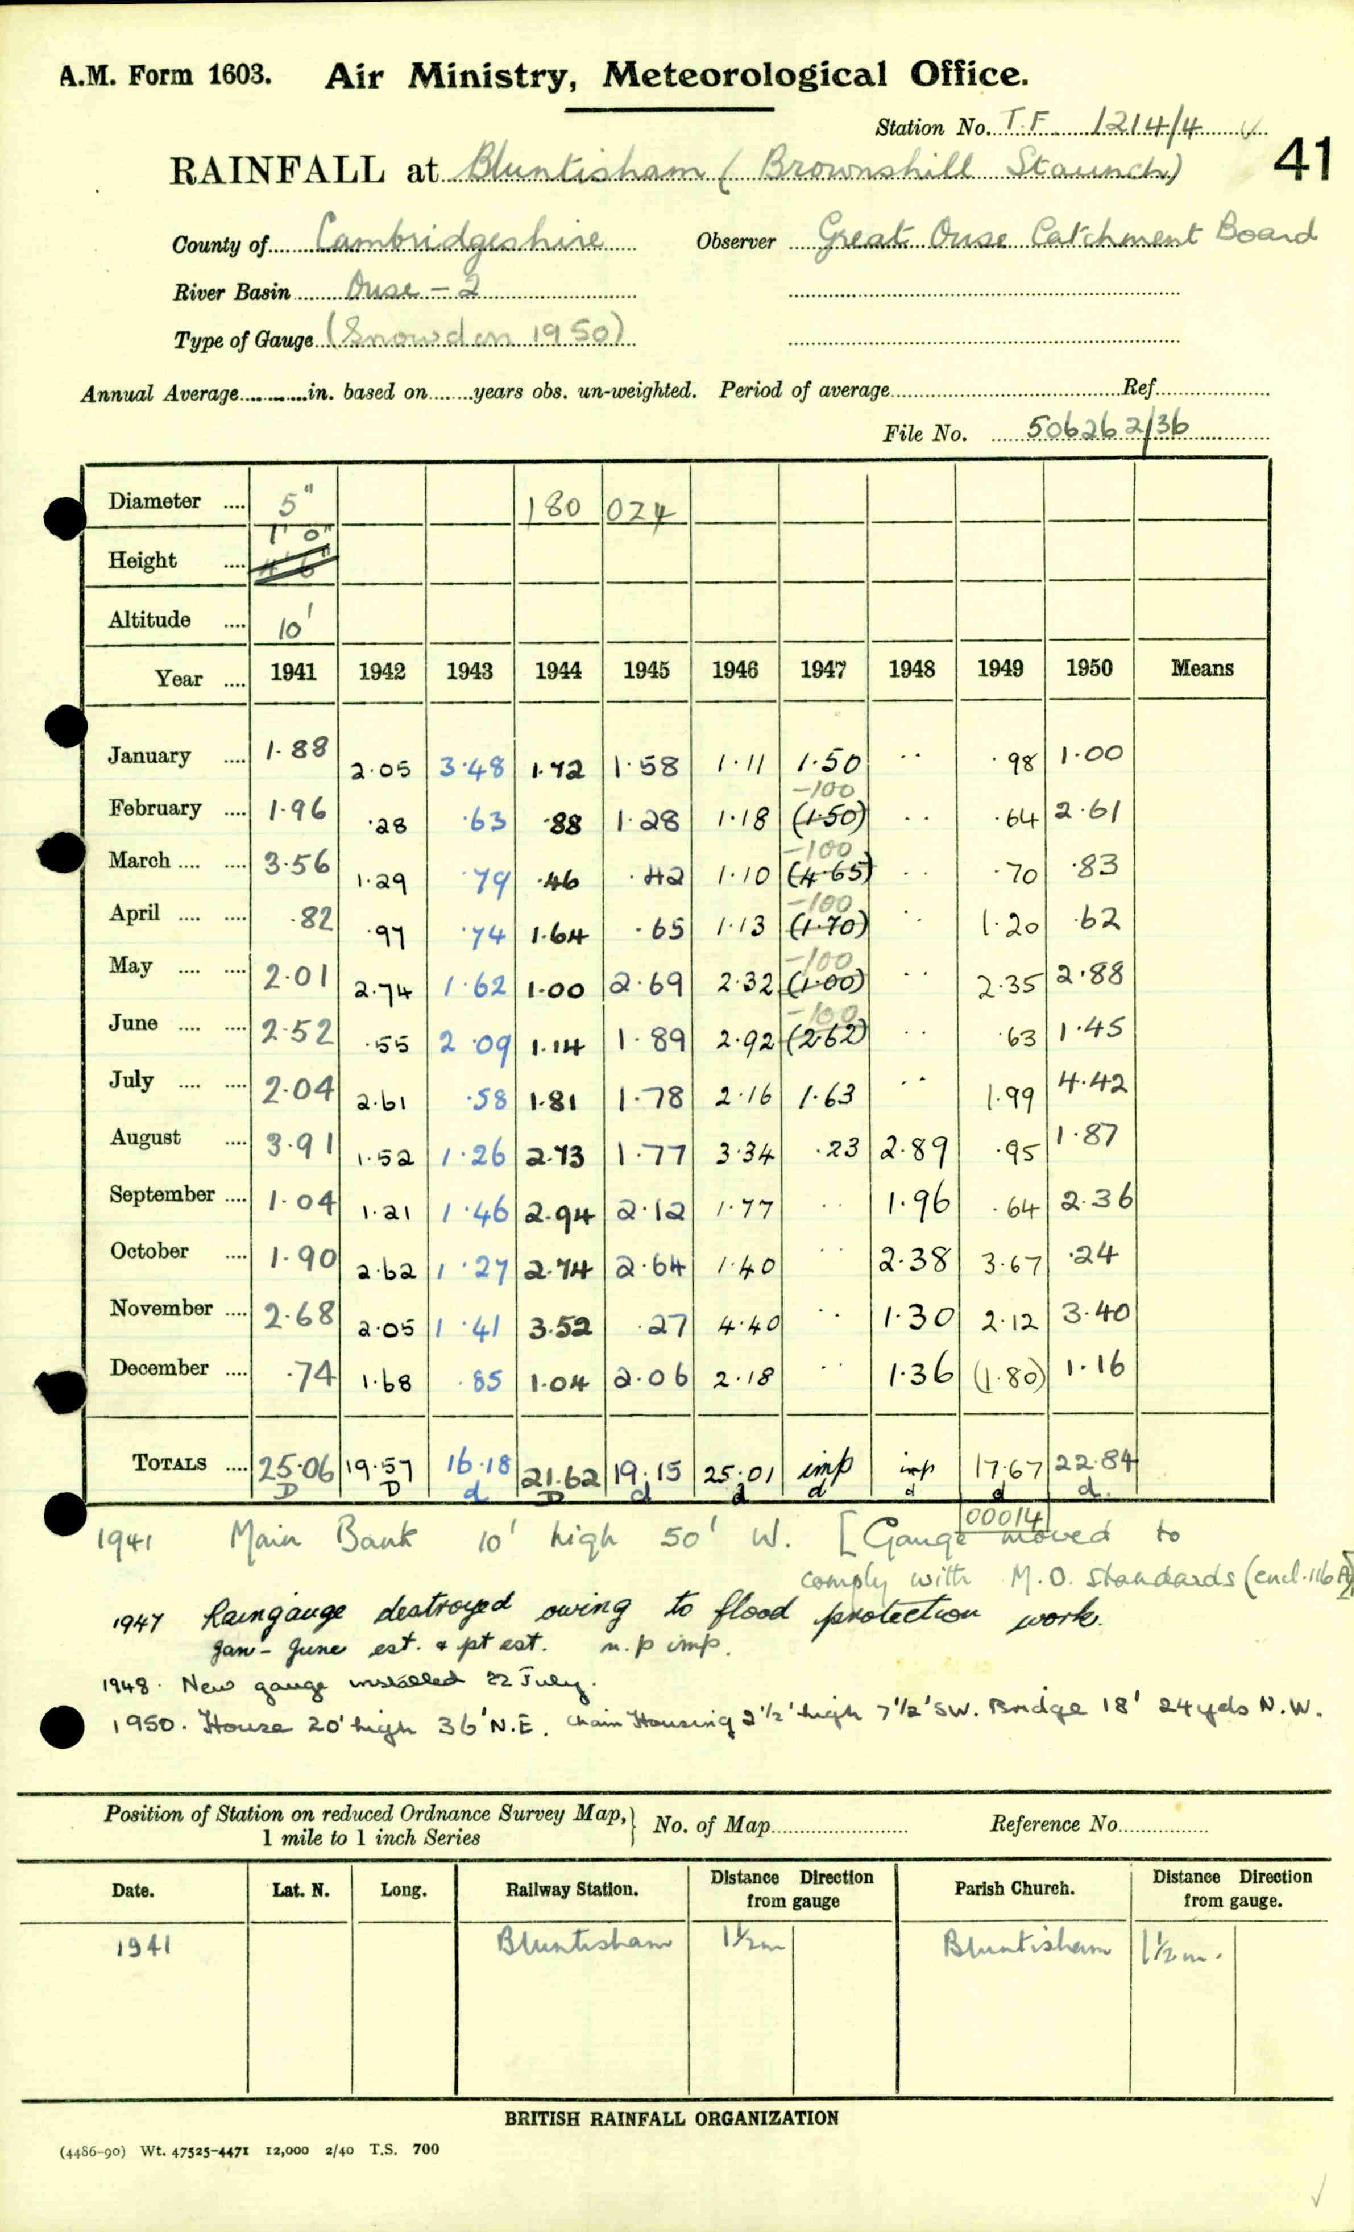 A.M. Form 1603. Air Ministry, Meteorological Office.
Station No. T.F. 1214/4 ✓
RAINFALL at Bluntisham (Brownshill Staunch) 41
County of Cambridgeshire Observer Great Ouse Catchment Board
River Basin Ouse - 2
Type of Gauge (Snowdon 1950)
Annual Average in. based on years obs. un-weighted. Period of average Ref
File No. 506262/36
Diameter 5" 180 024
1' 0"
Height 4' 6"
Altitude 10'
Year 1941 1942 1943 1944 1945 1946 1947 1948 1949 1950 Means
January 1.88 2.05 3.48 1.72 1.58 1.11 1.50 .. .98 1.00
-100
February 1.96 .28 .63 .88 1.28 1.18 (1.50) .. .64 2.61
-100
March 3.56 1.29 .79 .46 .42 1.10 (4.65) .. .70 .83
-100
April .82 .97 .74 1.64 .65 1.13 (1.70) .. 1.20 .62
-100
May 2.01 2.74 1.62 1.00 2.69 2.32 (1.00) .. 2.35 2.88
-100
June 2.52 .55 2.09 1.14 1.89 2.92 (2.62) .. .63 1.45
July 2.04 2.61 .58 1.81 1.78 2.16 1.63 .. 1.99 4.42
August 3.91 1.52 1.26 2.73 1.77 3.34 .23 2.89 .95 1.87
September 1.04 1.21 1.46 2.94 2.12 1.77 .. 1.96 .64 2.36
October 1.90 2.62 1.27 2.74 2.64 1.40 .. 2.38 3.67 .24
November 2.68 2.05 1.41 3.52 .27 4.40 .. 1.30 2.12 3.40
December .74 1.68 .85 1.04 2.06 2.18 .. 1.36 (1.80) 1.16
TOTALS 25.06 19.57 16.18 21.62 19.15 25.01 imp imp 17.67 22.84
D D d D d d d d d d.
00014
1941 Main Bank 10' high 50' W. [Gauge moved to
comply with M.O. standards (encl. 116A)]
1947 Raingauge destroyed owing to flood protection work.
Jan - June est. & pt est. n.p imp.
1948. New gauge installed 22 July.
1950. House 20' high 36' N.E. Chain Housing 2½' high 7½' SW. Bridge 18' 24yds N.W.
Position of Station on reduced Ordnance Survey Map, 1 mile to 1 inch Series No. of Map Reference No.
Date. Lat. N. Long. Railway Station. Distance Direction from gauge Parish Church. Distance Direction from gauge.
1941 Bluntisham 1½m Bluntisham 1½m.
BRITISH RAINFALL ORGANIZATION
(4486-90) Wt. 47525-4471 12,000 2/40 T.S. 700
✓